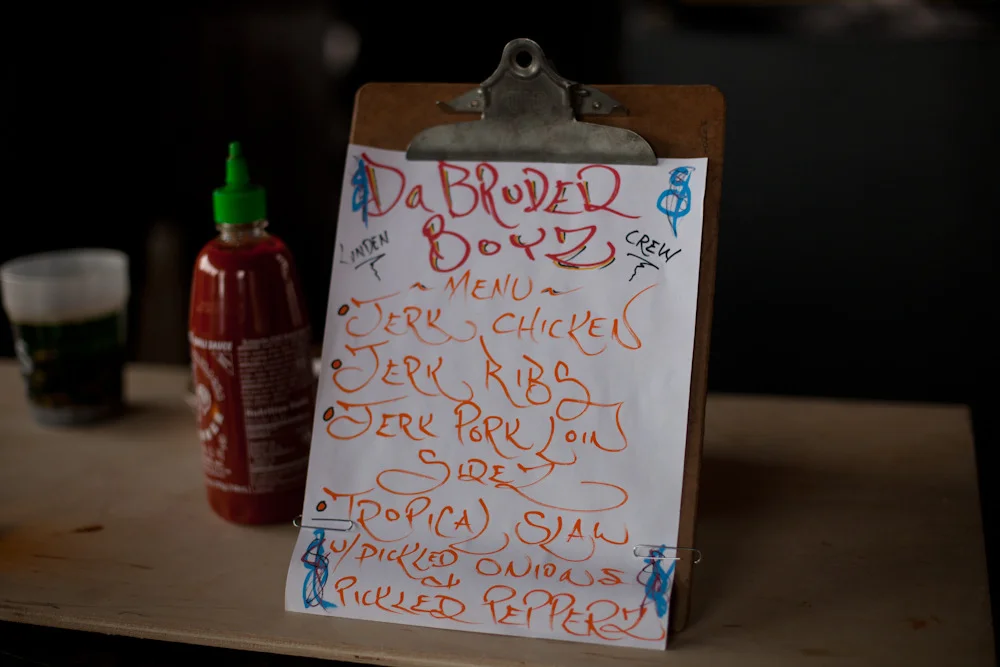 Da BRUDER
BOYZ
LINDEN
CREW
~ MENU ~
JERK CHICKEN
JERK RIBS
JERK PORK LOIN
SIDEZ
TROPICAL SLAW
W/ PICKLED ONIONS
&
PICKLED PEPPERZ